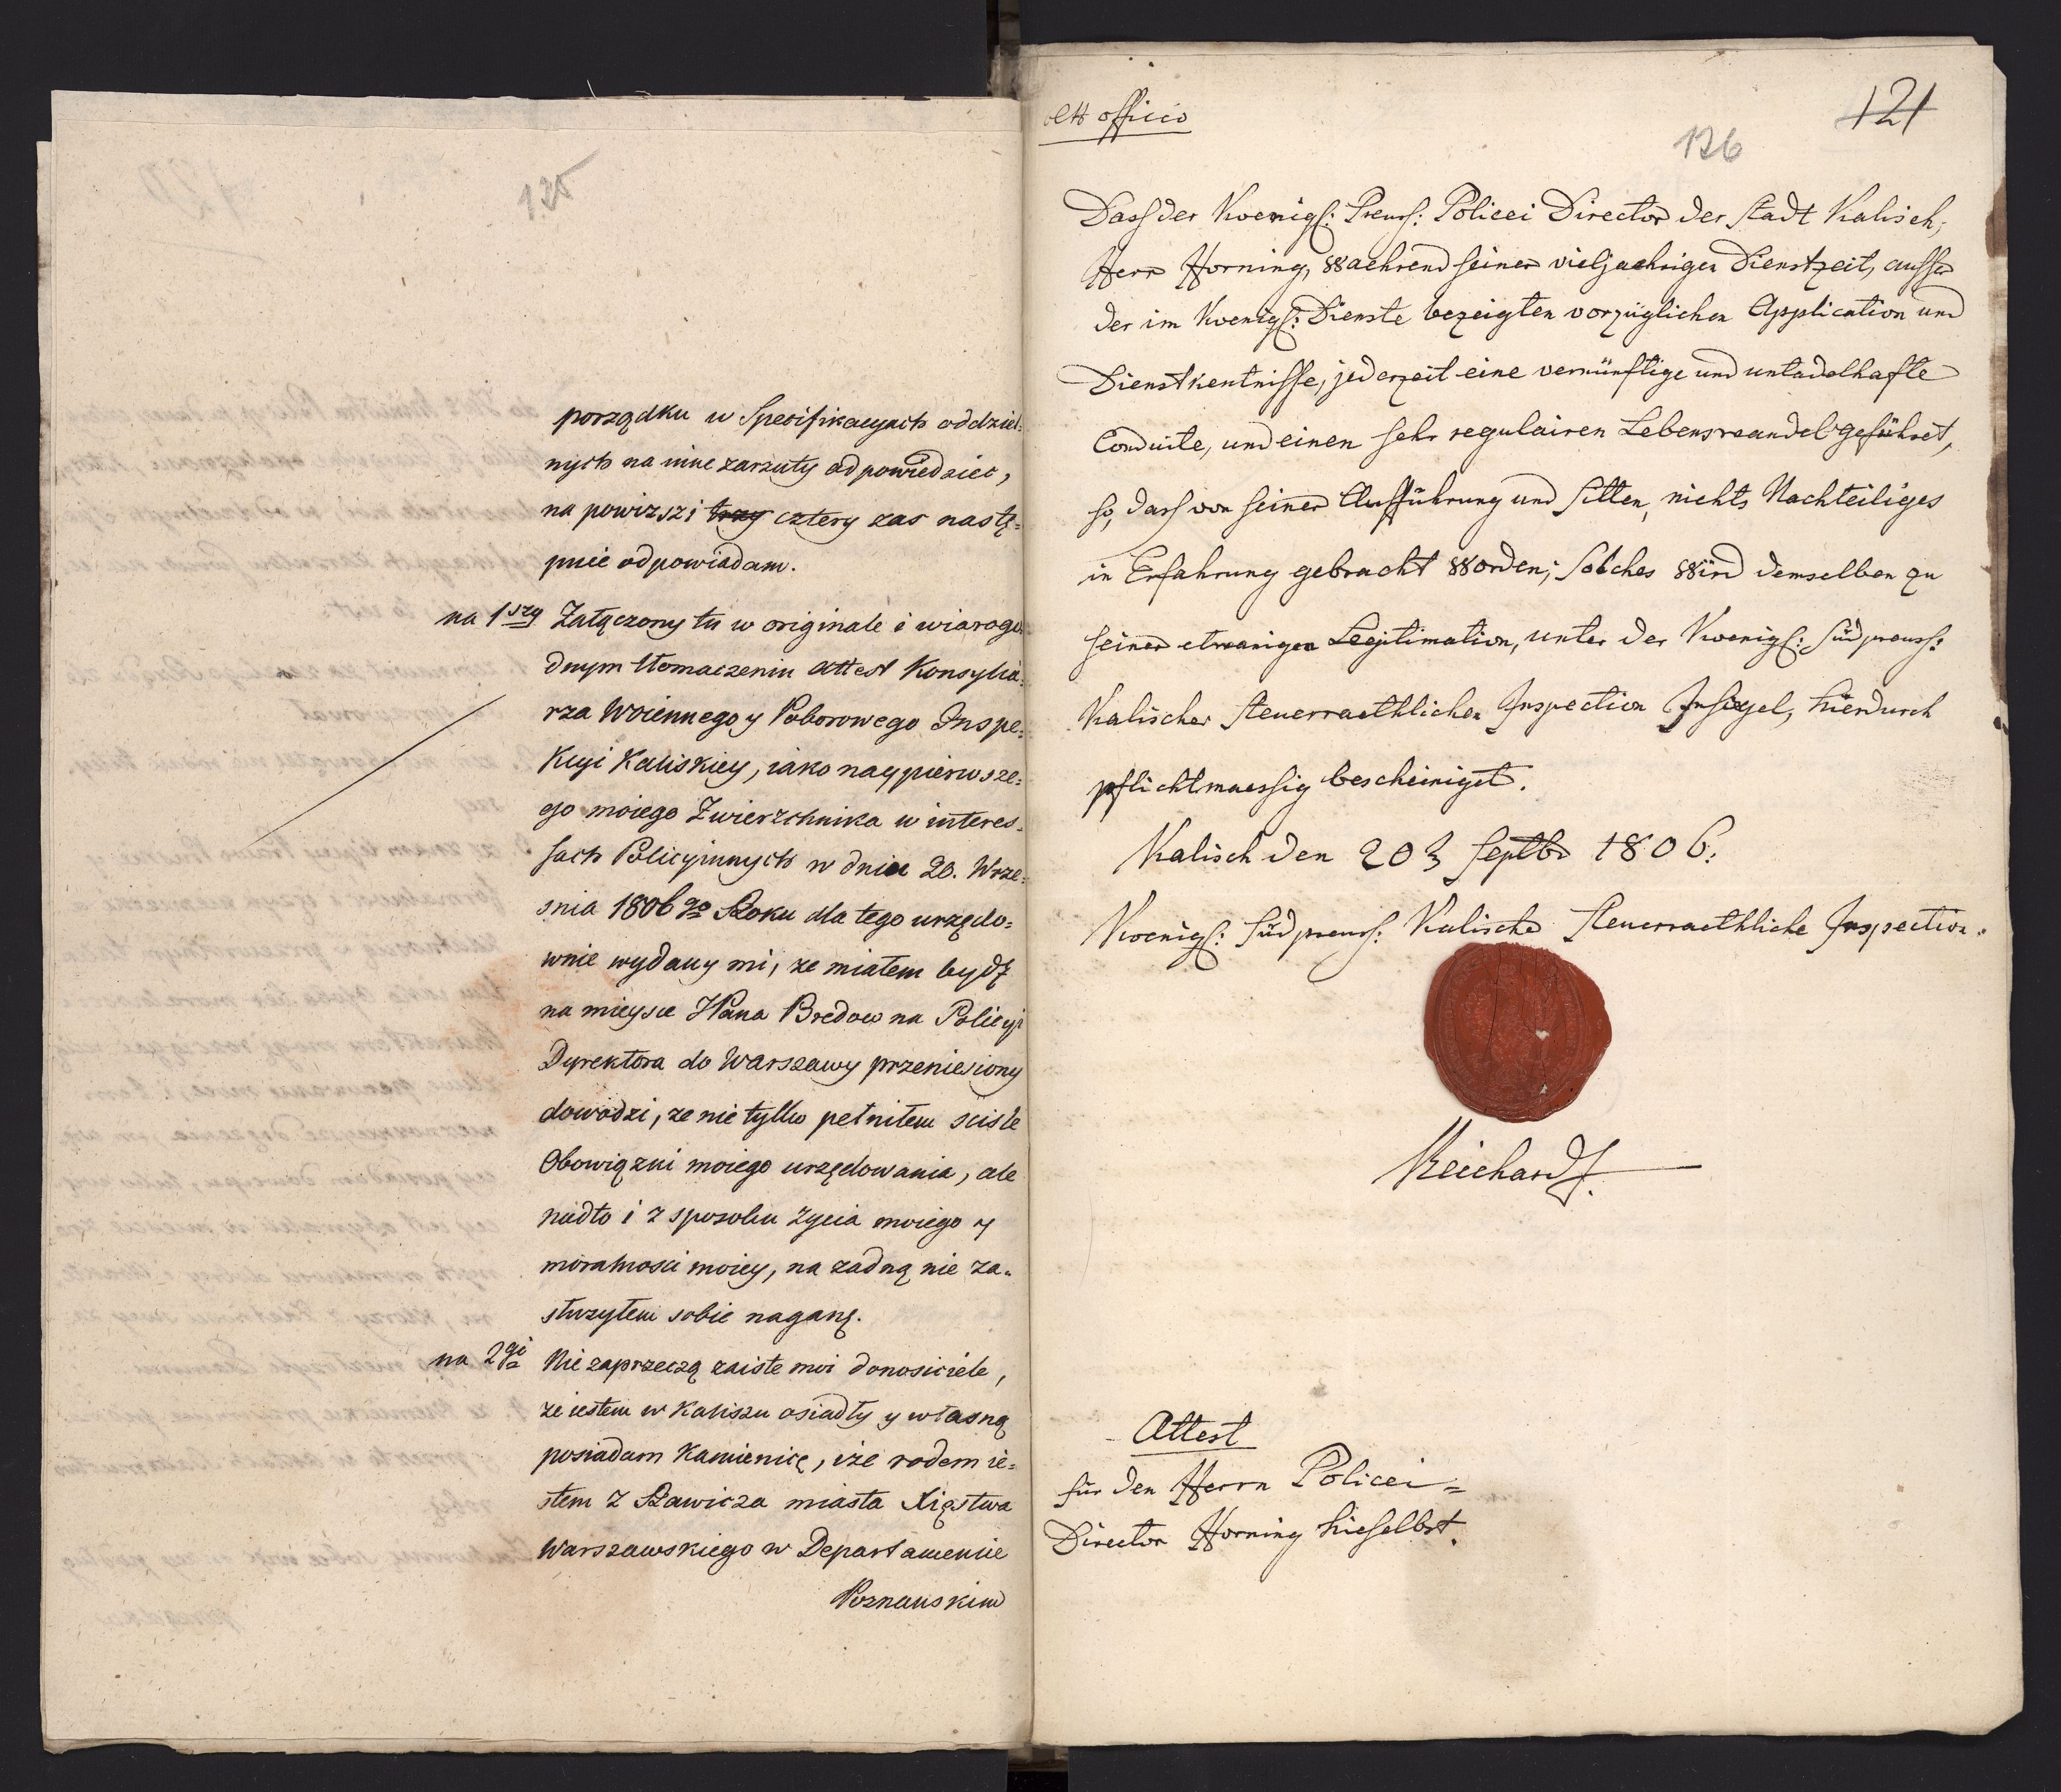 125
porządku w Specifikacyach oddziel=
nych na inne zarzuty odpowiedziec,
na powizszi trzy cztery zas nastę=
pnie odpowiadam.
na 1szy Załączony tu w originale i wiarogo=
dnym tłomaczeniu attest Konsylia=
rza Woiennego y Poborowego Inspe=
kcyi Kaliskiey, iako naypierwsze=
go moiego Zwierzchnika w interes=
sach Policyinnych w dniu 20. Wrze=
snia 1806go Roku dla tego urzędo=
wnie wydany mi, ze miałem bydź
na mieysce JPana Bredow na Policyi
Dyrektora do Warszawy przeniesiony
dowodzi, ze nie tylko pełniłem sciśle
Obowiązki moiego urzędowania, ale
nadto i z sposobu życia moiego y
moralnosci moiey, na zadną nie za=
służyłem sobie naganę.
na 2gi Nie zaprzeczą zaiste moi donosiciele,
że iestem w Kaliszu osiadły y własną
posiadam Kamienicę, iże rodem ie=
stem z Rawicza miasta Xięstwa
Warszawskiego w Departamencie
Poznanskim
ex officio
121
126
Dass der Koenigl: Preuss: Policei Director der Stadt Kalisch,
Herr Horning, waehrend seiner vieljaehrigen Dienstzeit, ausser
der im Koenigl: Dienste bezeigten vorzüglichen Application und
Dienstkentnisse, jederzeit eine vernünftige und untadelhafte
Conduite, und einen sehr regulairen Lebenswandel geführet,
so, dass von seiner Aufführung und Sitten, nichts Nachteiliges
in Erfahrung gebracht worden; Solches wird demselben zu
seiner etwanigen Legitimation, unter der Koenigl: Südpreuss:
Kalischer Steuerraethlichen Inspection Insiegel, hierdurch
pflichtmaessig bescheiniget.
Kalisch den 20t Septbr 1806.
Koenigl: Südpreuss: Kalische Steuerraethliche Inspection.
Reichardt.
Attest
für den Herrn Policei=
Director Horning hieselbst.